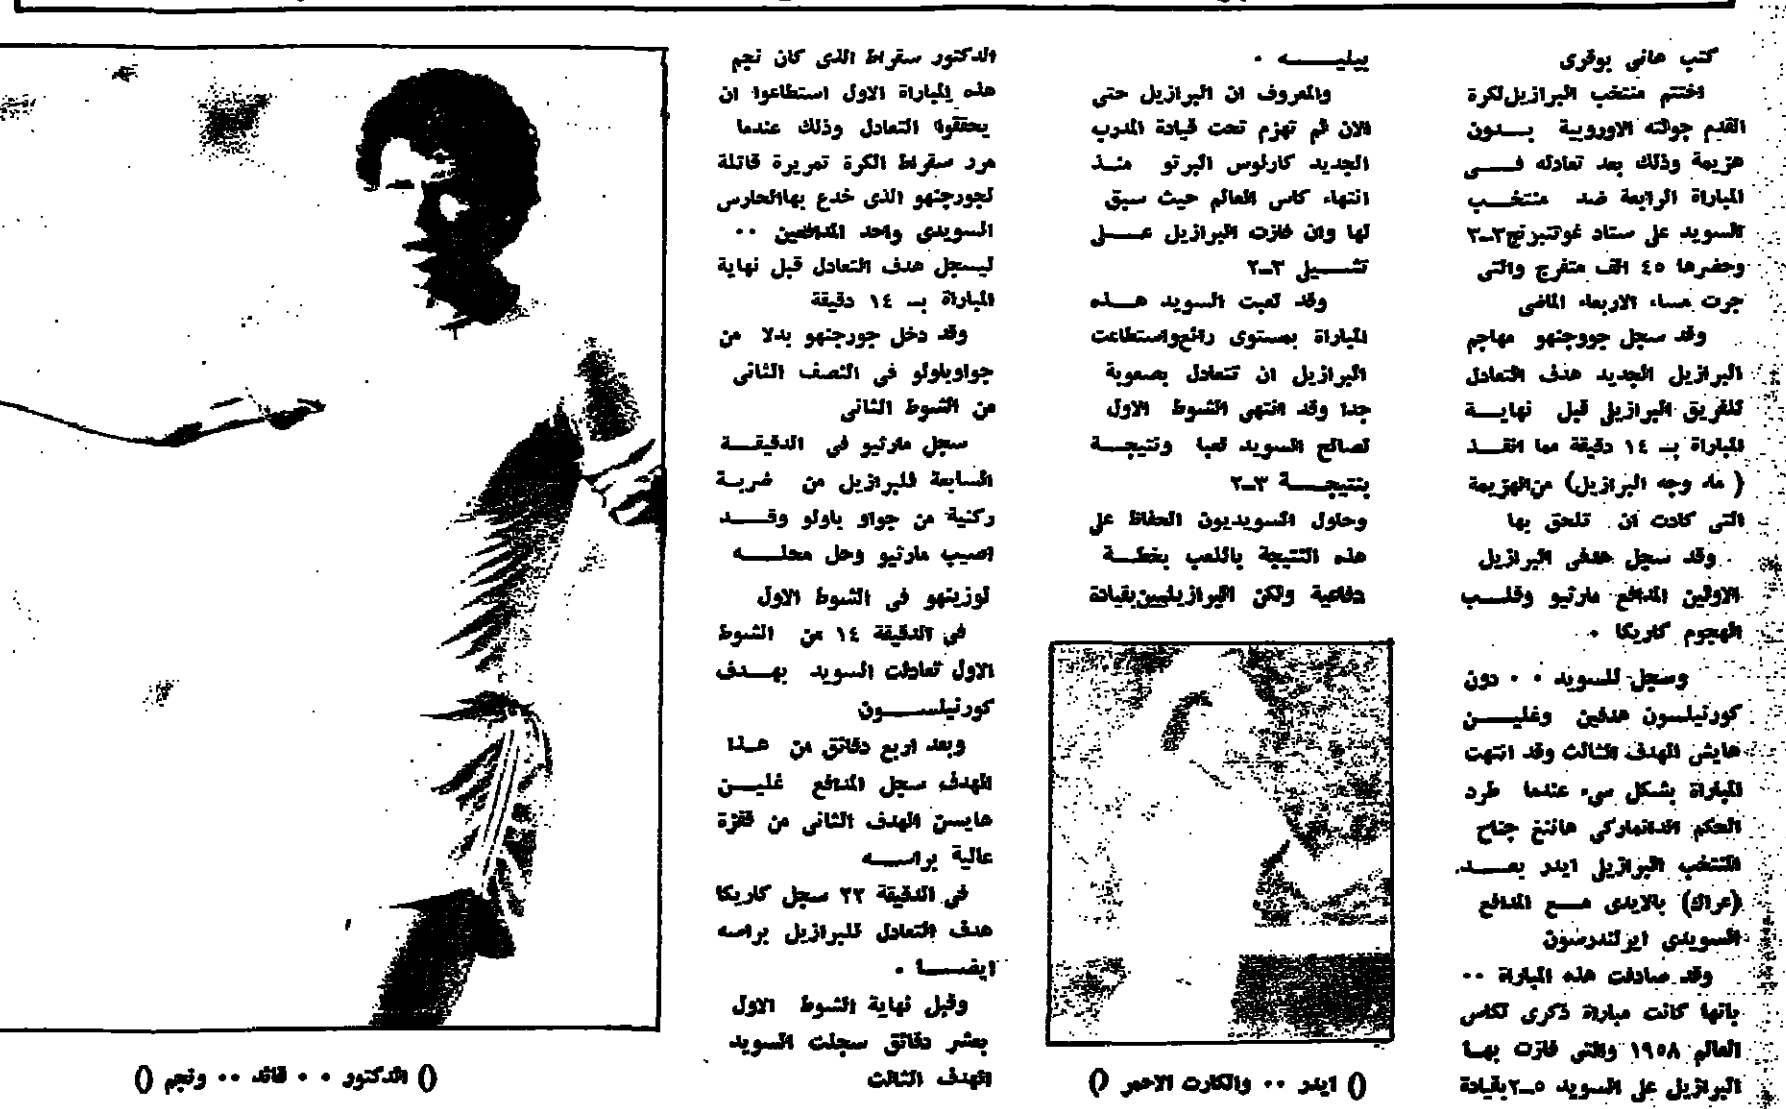 كتب هانى بوقرى
اختتم منتخب البرازيل لكرة
القدم جولته الاوروبية بـــدون
هزيمة وذلك بعد تعادله فــــى
المباراة الرابعة ضد منتخـــب
السويد على ستاد غوتنبرنج ٣ــ٣
وحضرها ٤٥ الف متفرج والتى
جرت مساء الاربعاء الماضى
وقد سجل جووجنهو مهاجم
البرازيل الجديد هدف التعادل
للفريق البرازيلى قبل نهايـــة
المباراة بــ ١٤ دقيقة مما انقـــذ
( ماء وجه البرازيل) من الهزيمة
التى كادت ان تلحق بها
وقد سجل هدفى البرازيل
الاولين المدافع مارثيو وقلـــب
الهجوم كاريكا ٠
وسجل للسويد ٠ ٠ دون
كورنيلسون هدفين وغليـــــن
هايش الهدف الثالث وقد انتهت
المباراة بشكل سيء عندما طرد
الحكم الدانماركي هاننغ جناح
المنتخب البرازيلى ايدر بعـــــد
(عراك) بالايدى مـــع المدافع
السويدى ايرلندرسون
وقد صادفت هذه المباراة ٠٠
بانها كانت مباراة ذكرى لكاس
العالم ١٩٥٨ والتى فازت بهــا
البرازيل على السويد ٥ــ٢ بقيادة
بيليــــــه ٠
والمعروف ان البرازيل حتى
الان لم تهزم تحت قيادة المدرب
الجديد كارلوس البرتو منـــذ
انتهاء كاس العالم حيث سبق
لها وان فازت البرازيل عــــلى
تشـــيلى ٣ــ٢
وقد لعبت السويد هـــذه
المباراة بمستوى رائع واستطاعت
البرازيل ان تتعادل بصعوبة
جدا وقد انتهى الشوط الاول
لصالح السويد لعبا ونتيجـــة
بنتيجــــة ٣ــ٢
وحاول السويديون الحفاظ على
هذه النتيجة باللعب بخطـــة
دفاعية ولكن البرازيليين بقيادة
الدكتور سقراط الذى كان نجم
هذه المباراة الاول استطاعوا ان
يحققوا التعادل وذلك عندما
مرر سقراط الكرة تمريرة قاتلة
لجورجنهو الذى خدع بها الحارس
السويدى واحد المدافعين ٠٠
ليسجل هدف التعادل قبل نهاية
المباراة بــ ١٤ دقيقة
وقد دخل جورجنهو بدلا من
جواوباولو فى النصف الثانى
من الشوط الثانى
سجل مارثيو فى الدقيقـــة
السابعة للبرازيل من ضربــة
ركنية من جواو باولو وقــــد
اصيب مارثيو وحل محلــــه
لوزينهو فى الشوط الاول
فى الدقيقة ١٤ من الشوط
الاول تعادلت السويد بهـــدف
كورنيلســــــون
وبعد اربع دقائق من هــذا
الهدف سجل المدافع غليــــن
هايسن الهدف الثانى من قفزة
عالية براســــه
فى الدقيقة ٢٢ سجل كاريكا
هدف التعادل للبرازيل براسه
ايضـــــا ٠
وقبل نهاية الشوط الاول
بعشر دقائق سجلت السويد
الهدف الثالث
() ايدر ٠٠ والكارت الاحمر ()
() الدكتور ٠ ٠ قائد ٠٠ ونجم ()